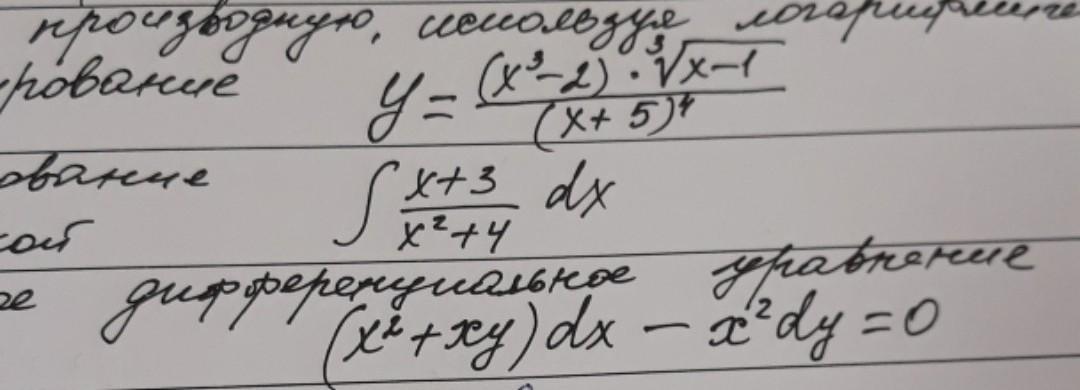 производную, используя логарифмиче
рование y = (x³-2)·∛x-1 / (x+5)⁴
ование ∫ x+3 / x²+4 dx
ой
ое дифференциальное уравнение
(x²+xy)dx - x²dy = 0